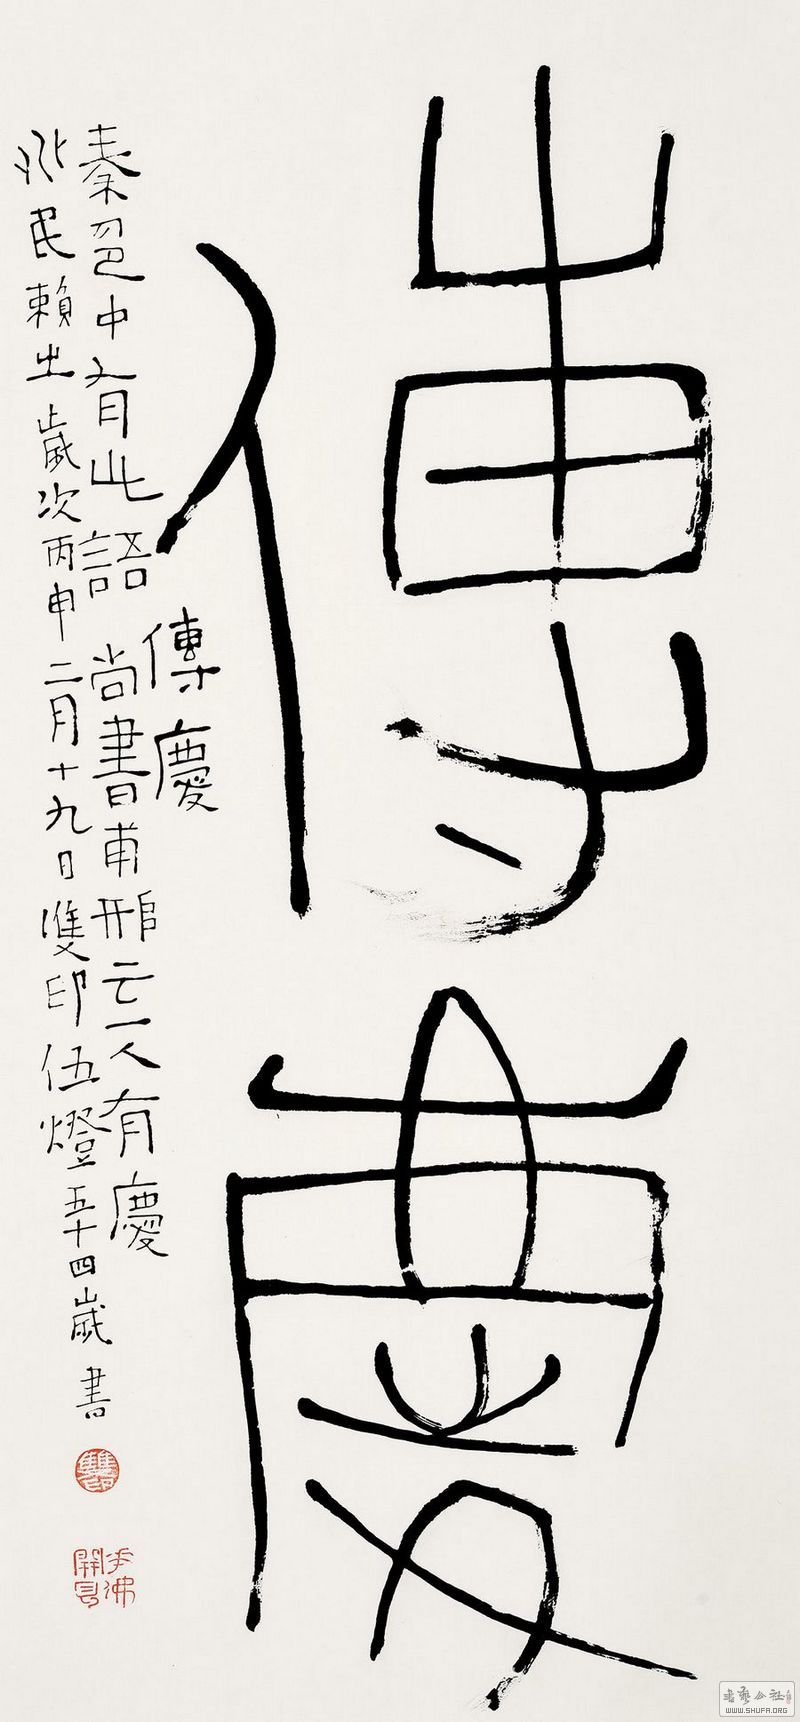 傳慶
傳慶
秦邑中有此語 尚書甫刑云一人有慶
兆民賴之 歲次丙申二月十九日雙印伍燈五十四歲書
雙印
WWW.SHUFA.ORG